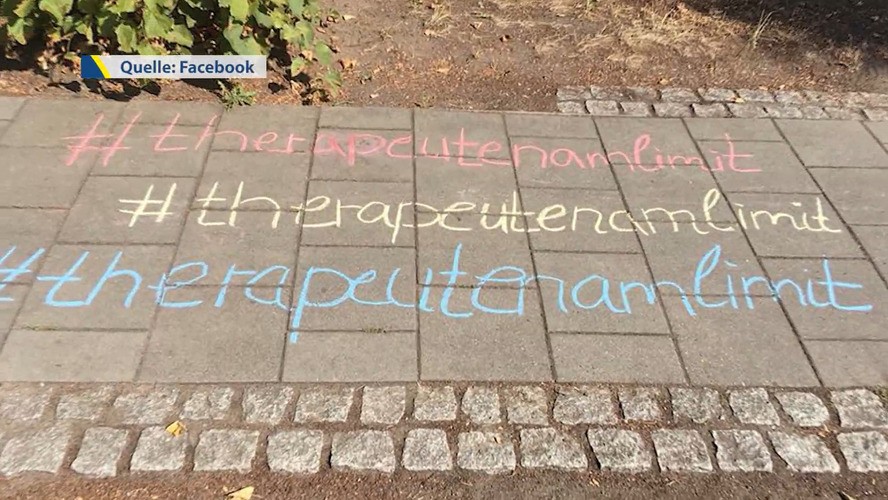 Quelle: Facebook
#therapeutenamlimit
#therapeutenamlimit
#therapeutenamlimit